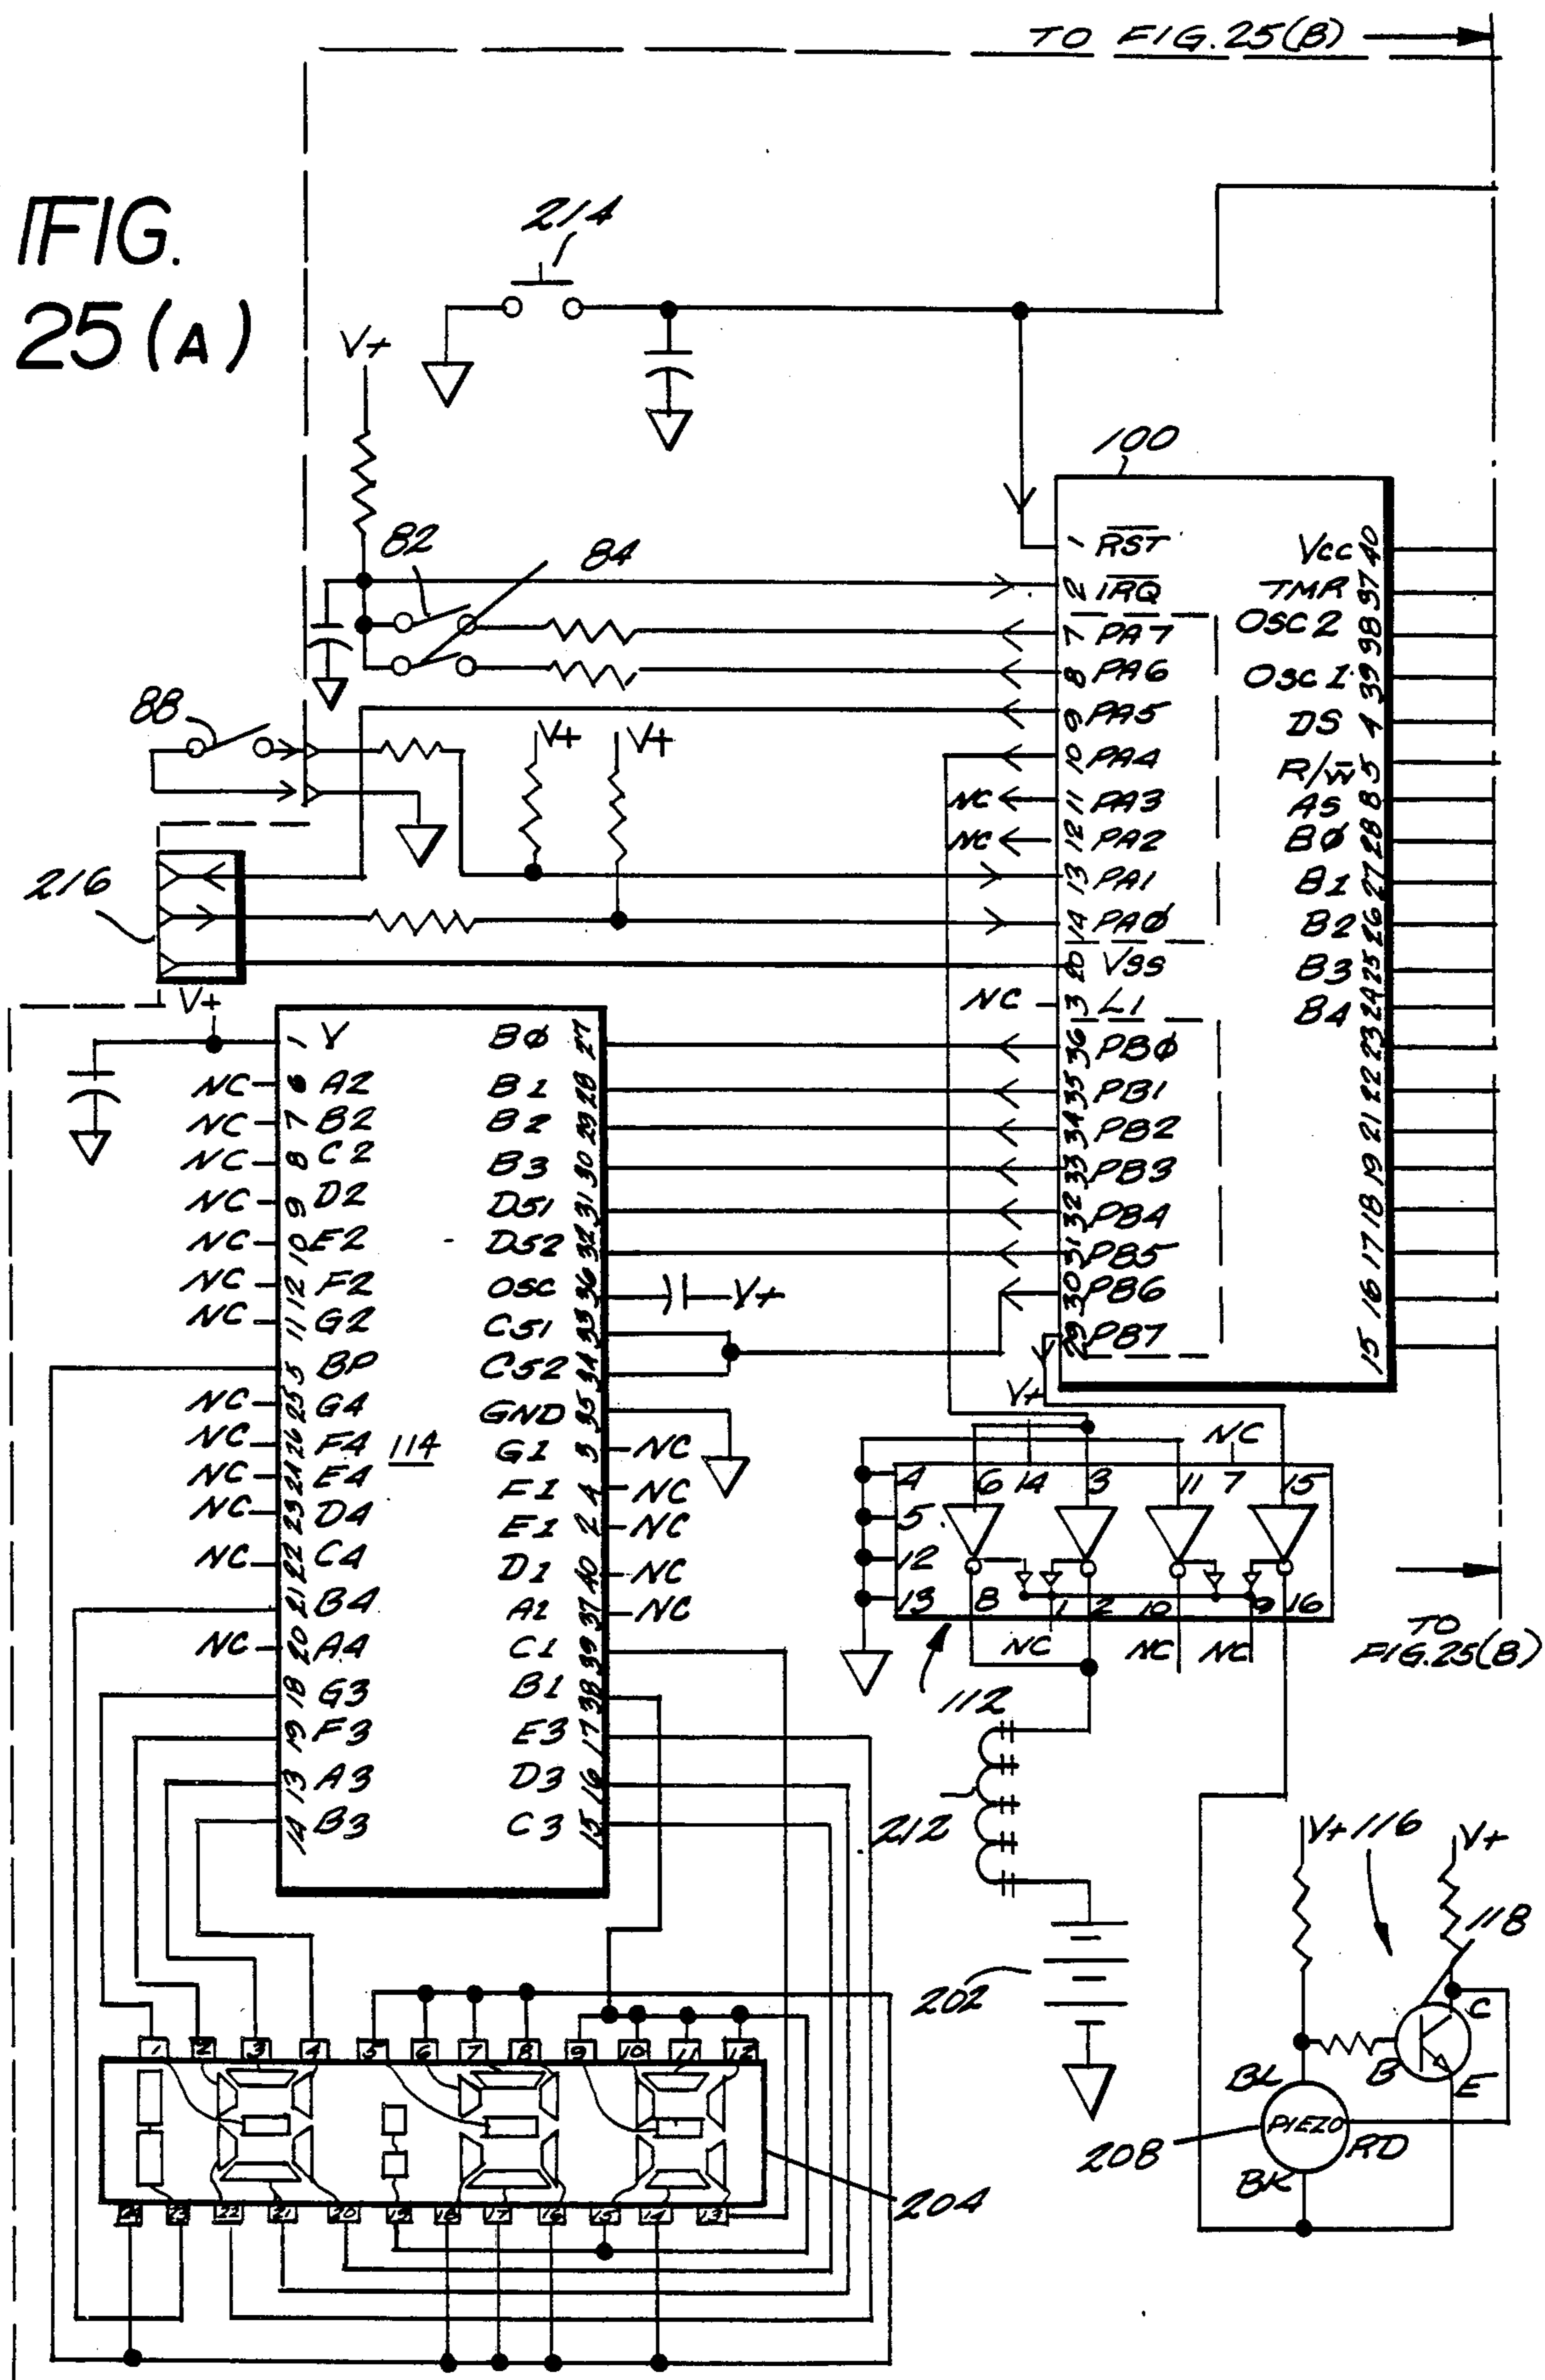 TO FIG. 25(B)
FIG.
25(A)
214
V+
100
82
84
1 RST
2 IRQ
7 PA7
8 PA6
9 PA5
10 PA4
NC 11 PA3
NC 12 PA2
13 PA1
14 PAØ
20 VSS
NC 3 L1
36 PBØ
35 PB1
34 PB2
33 PB3
32 PB4
31 PB5
30 PB6
29 PB7
VCC 40
TMR 37
OSC2 38
OSC1 39
DS 4
R/W 5
AS 6
BØ 28
B1 27
B2 26
B3 25
B4 24
23
22
21
19
18
17
16
15
88
V+
V+
216
V+
1 V
NC 6 A2
NC 7 B2
NC 8 C2
NC 9 D2
NC 10 E2
NC 12 F2
NC 11 G2
5 BP
NC 25 G4
NC 26 F4
NC 24 E4
NC 23 D4
NC 22 C4
21 B4
NC 20 A4
18 G3
19 F3
13 A3
14 B3
114
BØ 27
B1 28
B2 29
B3 30
DS1 31
DS2 32
OSC 36 V+
CS1 33
CS2 34
GND 35
G1 3 NC
F1 4 NC
E1 2 NC
D1 40 NC
A1 37 NC
C1 39
B1 38
E3 17
D3 16
C3 15
V+
NC
4 6 14 3 11 7 15
5
12
13 8 1 2 10 9 16
NC NC NC
112
TO
FIG.25(B)
212
202
V+ 116 V+
118
C
B
E
BL
PIEZO
RD
BK
208
1 2 3 4 5 6 7 8 9 10 11 12
24 23 22 21 20 19 18 17 16 15 14 13
204